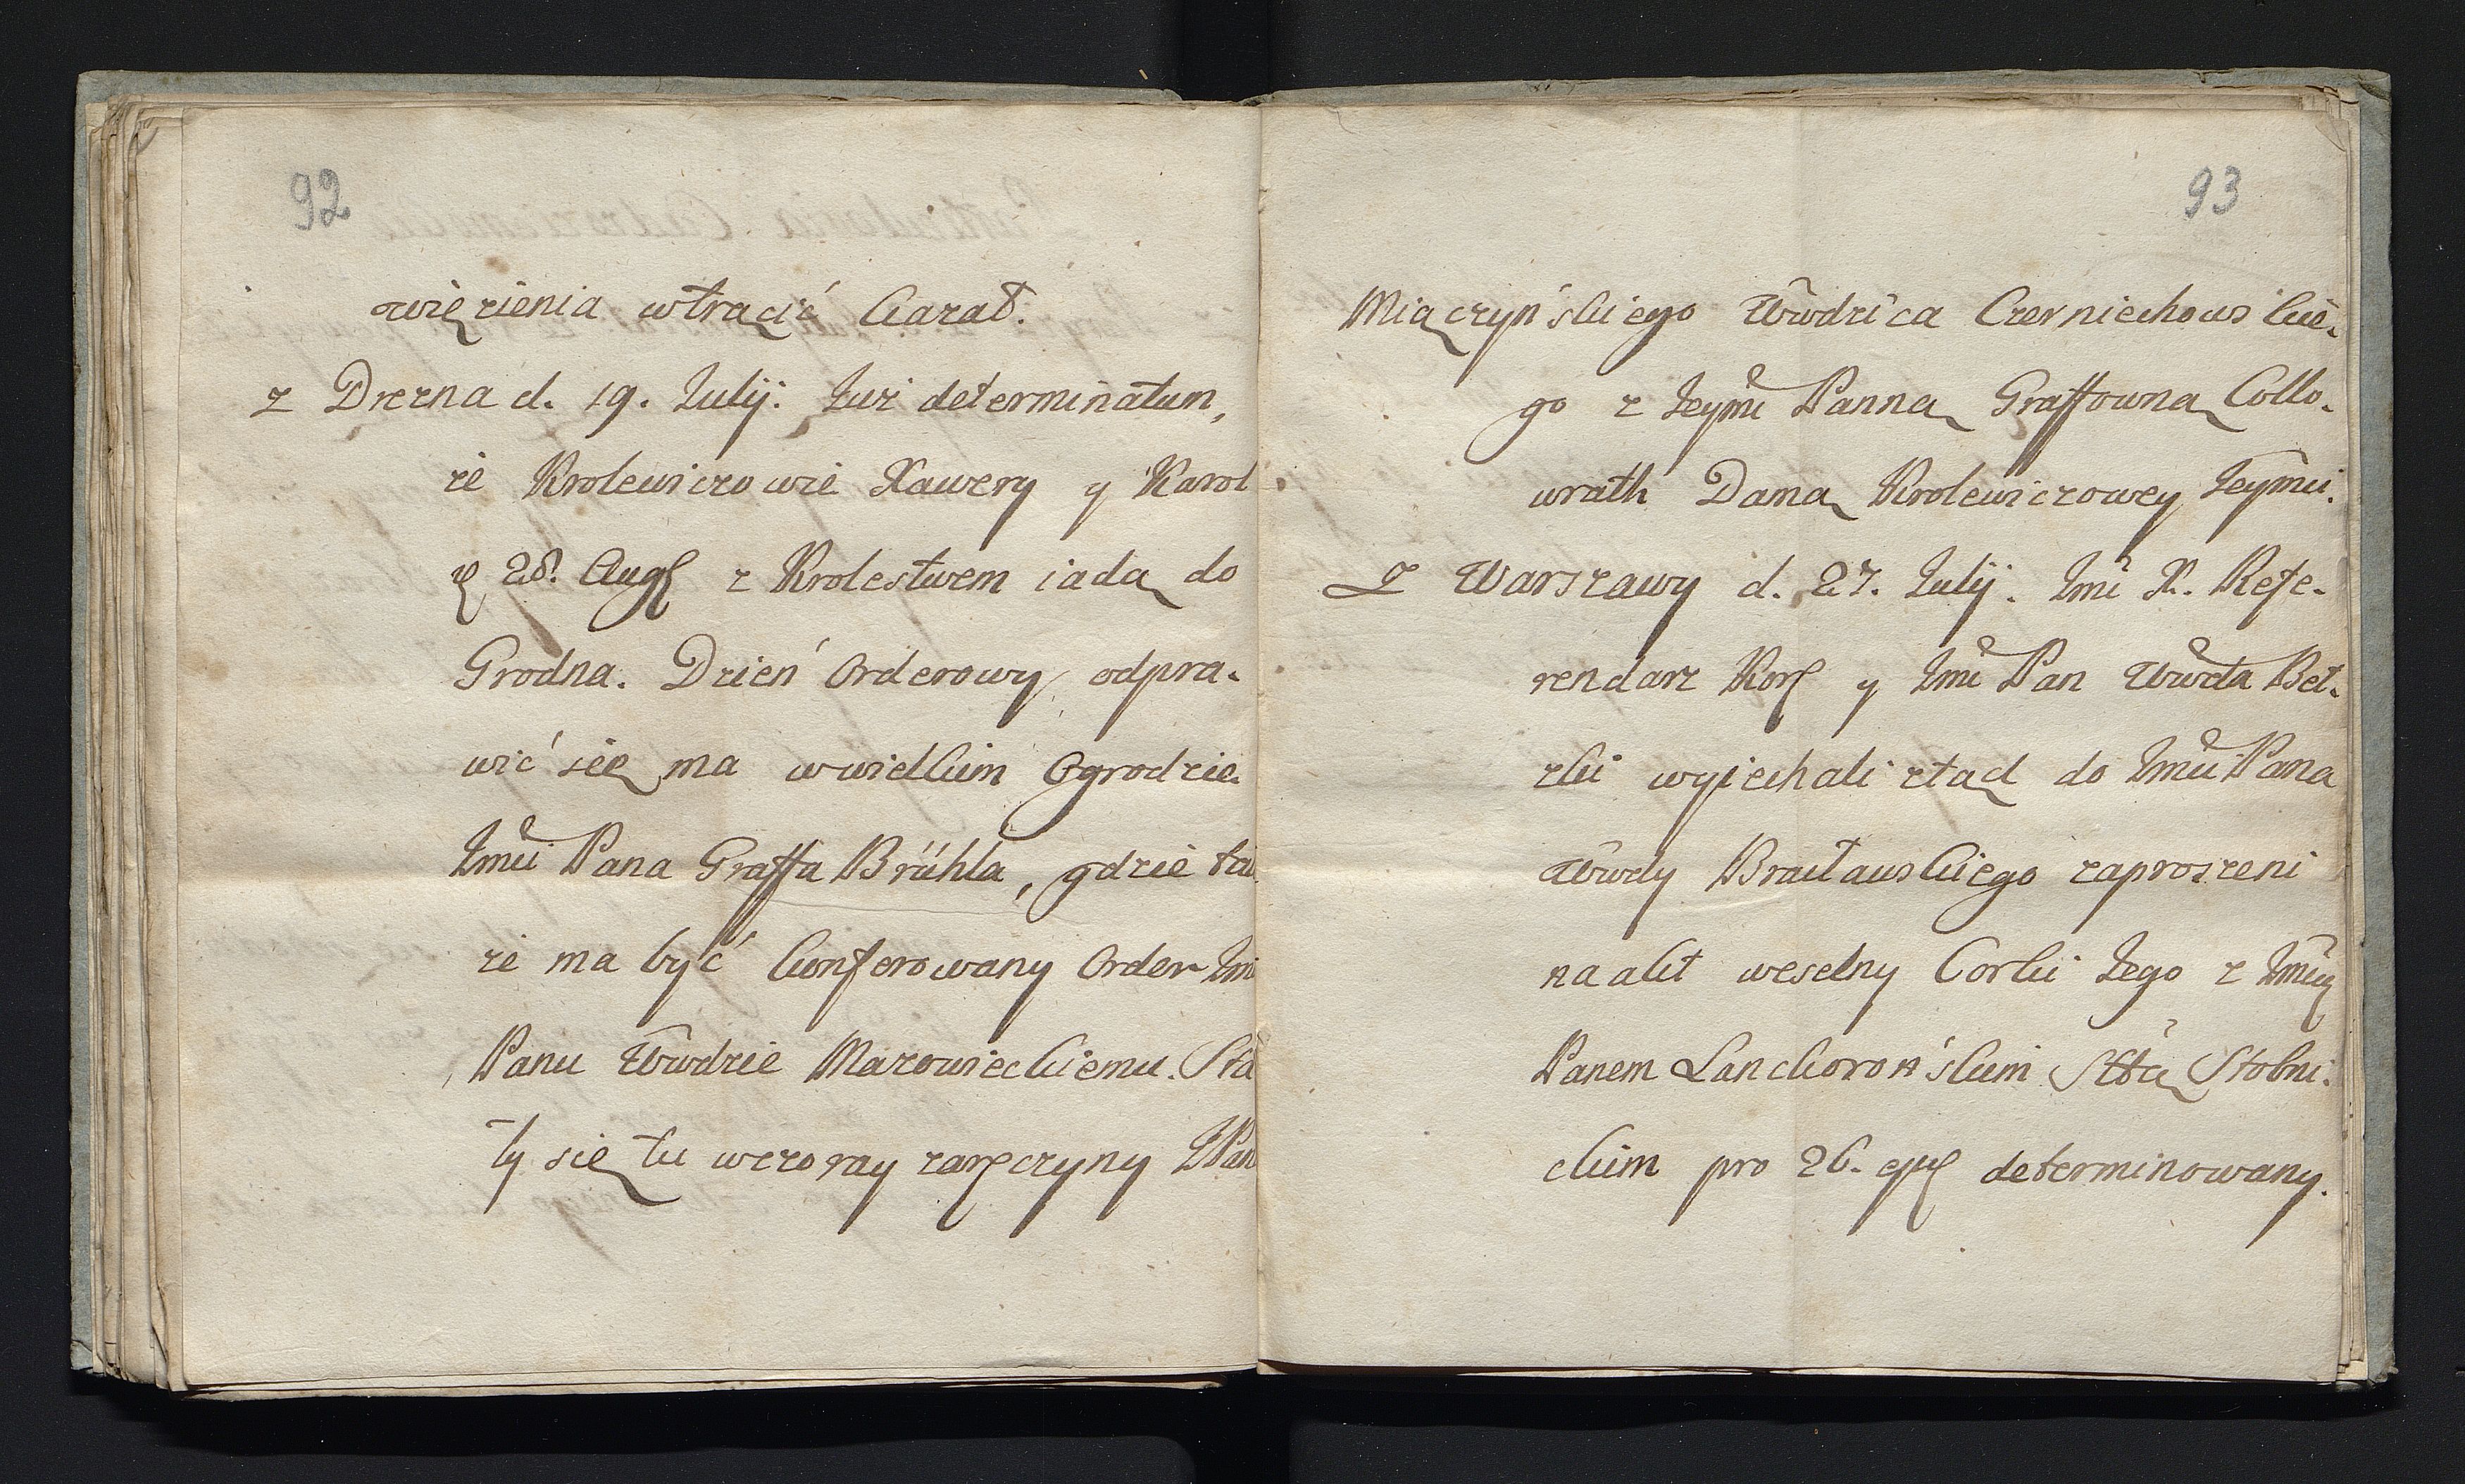 92
więzienia wtrącić kazał.
z Drezna d. 19. Iulij. Iuż determinatum,
że Krolewiczowie Xawery y Karol
28. Aug z Krolestwem iadą do
Grodna. Dzień Orderowy odpra-
wić się ma w wielkim Ogrodzie
Imci Pana Graffa Brühla, gdzie tak
że ma być konferowany Order Imci
Panu Wwdzie Mazowieckiemu. Sta
ły się tu wczoray zaręczyny JPan
93
Miączyńskiego Wwdzica Czerniechowskie-
go z Ieymć Panną Graffowną Collo-
wrath Damą Krolewiczowey Ieymci.
Z Warszawy d. 27. Iulij. Imć X. Refe-
rendarz Kor y Imć Pan Wwda Beł-
zki wyiechali ztąd do Imci Pana
Wwdy Bracławskiego zaproszeni
na akt weselny Corki Iego z Imcią
Panem Lanckorońskim Sttą Stobni-
ckim pro 26. ejus determinowany.